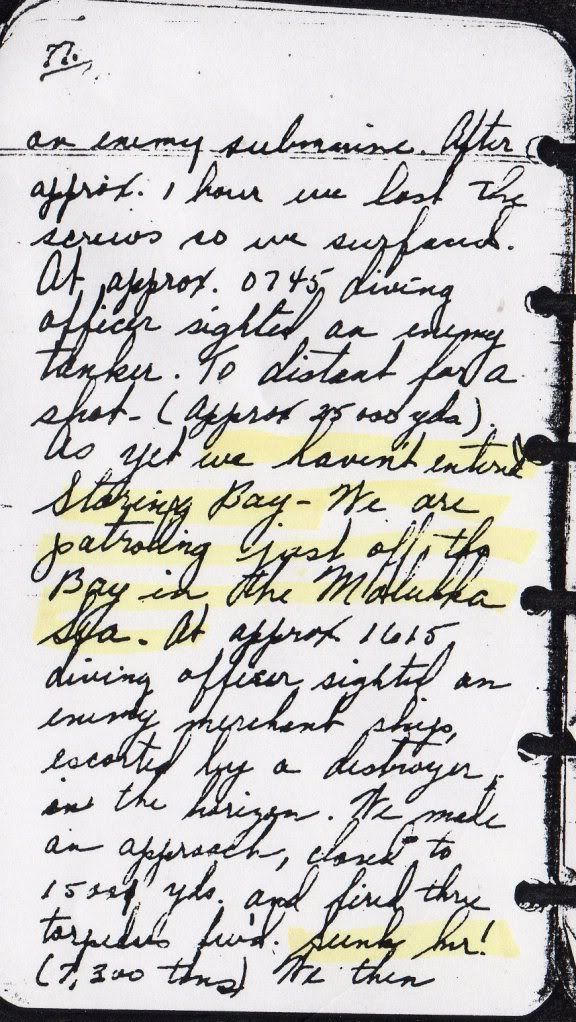 77.
an enemy submarine. After
approx. 1 hour we lost the
screws so we surfaced.
At approx. 0745 diving
officer sighted an enemy
tanker. To distant for a
shot - (approx 25000 yds).
As yet we haven't entered
Staring Bay - We are
patroling just off the
Bay in the Molukka
Sea. At approx 1615
diving officer sighted an
enemy merchant ship,
escorted by a destroyer,
on the horizon. We made
an approach, closed to
yds. and fired three
torpedos fwd. Sunk her!
(7,300 tons) We then